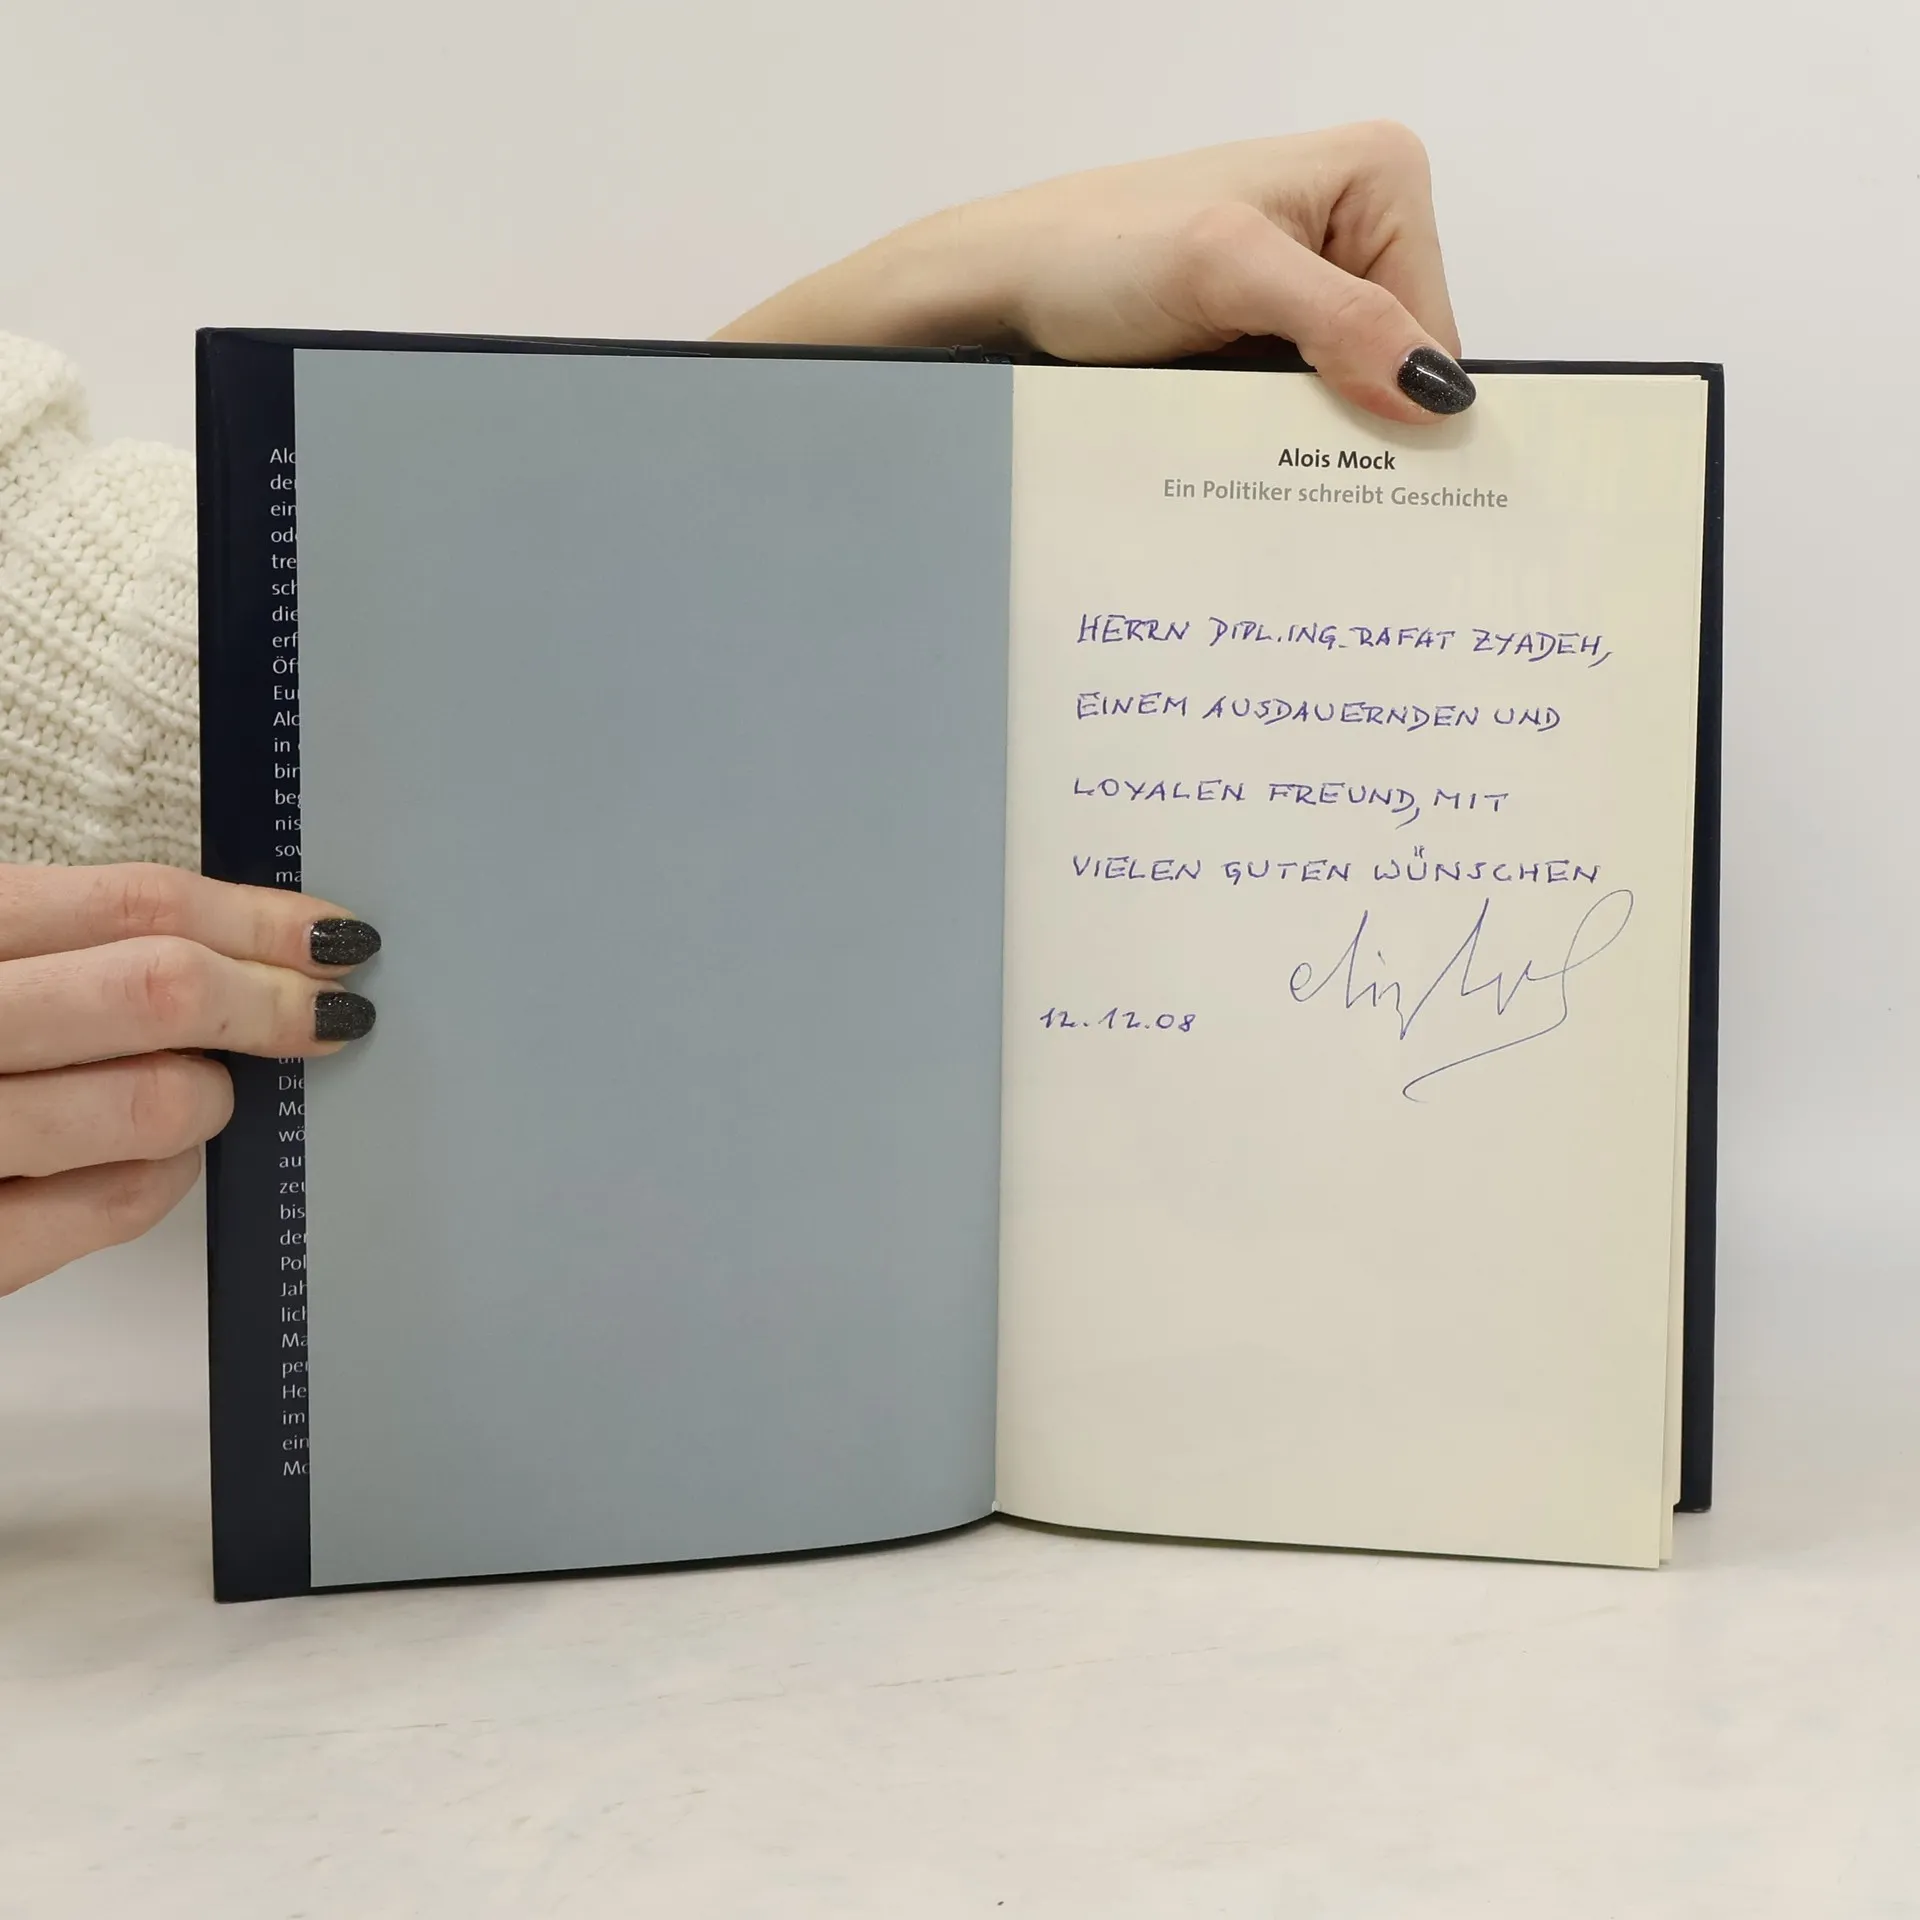 Alo
de
ein
od
tre
sch
die
erf
Öf
Eu
Alo
in
bin
beg
nis
sow
ma
un
Die
Mo
wö
au
zei
bis
der
Pol
Jah
lich
Ma
per
He
im
ein
Mo
Alois Mock
Ein Politiker schreibt Geschichte
HERRN DIPL.ING. RAFAT ZYADEH,
EINEM AUSDAUERNDEN UND
LOYALEN FREUND, MIT
VIELEN GUTEN WÜNSCHEN
12.12.08